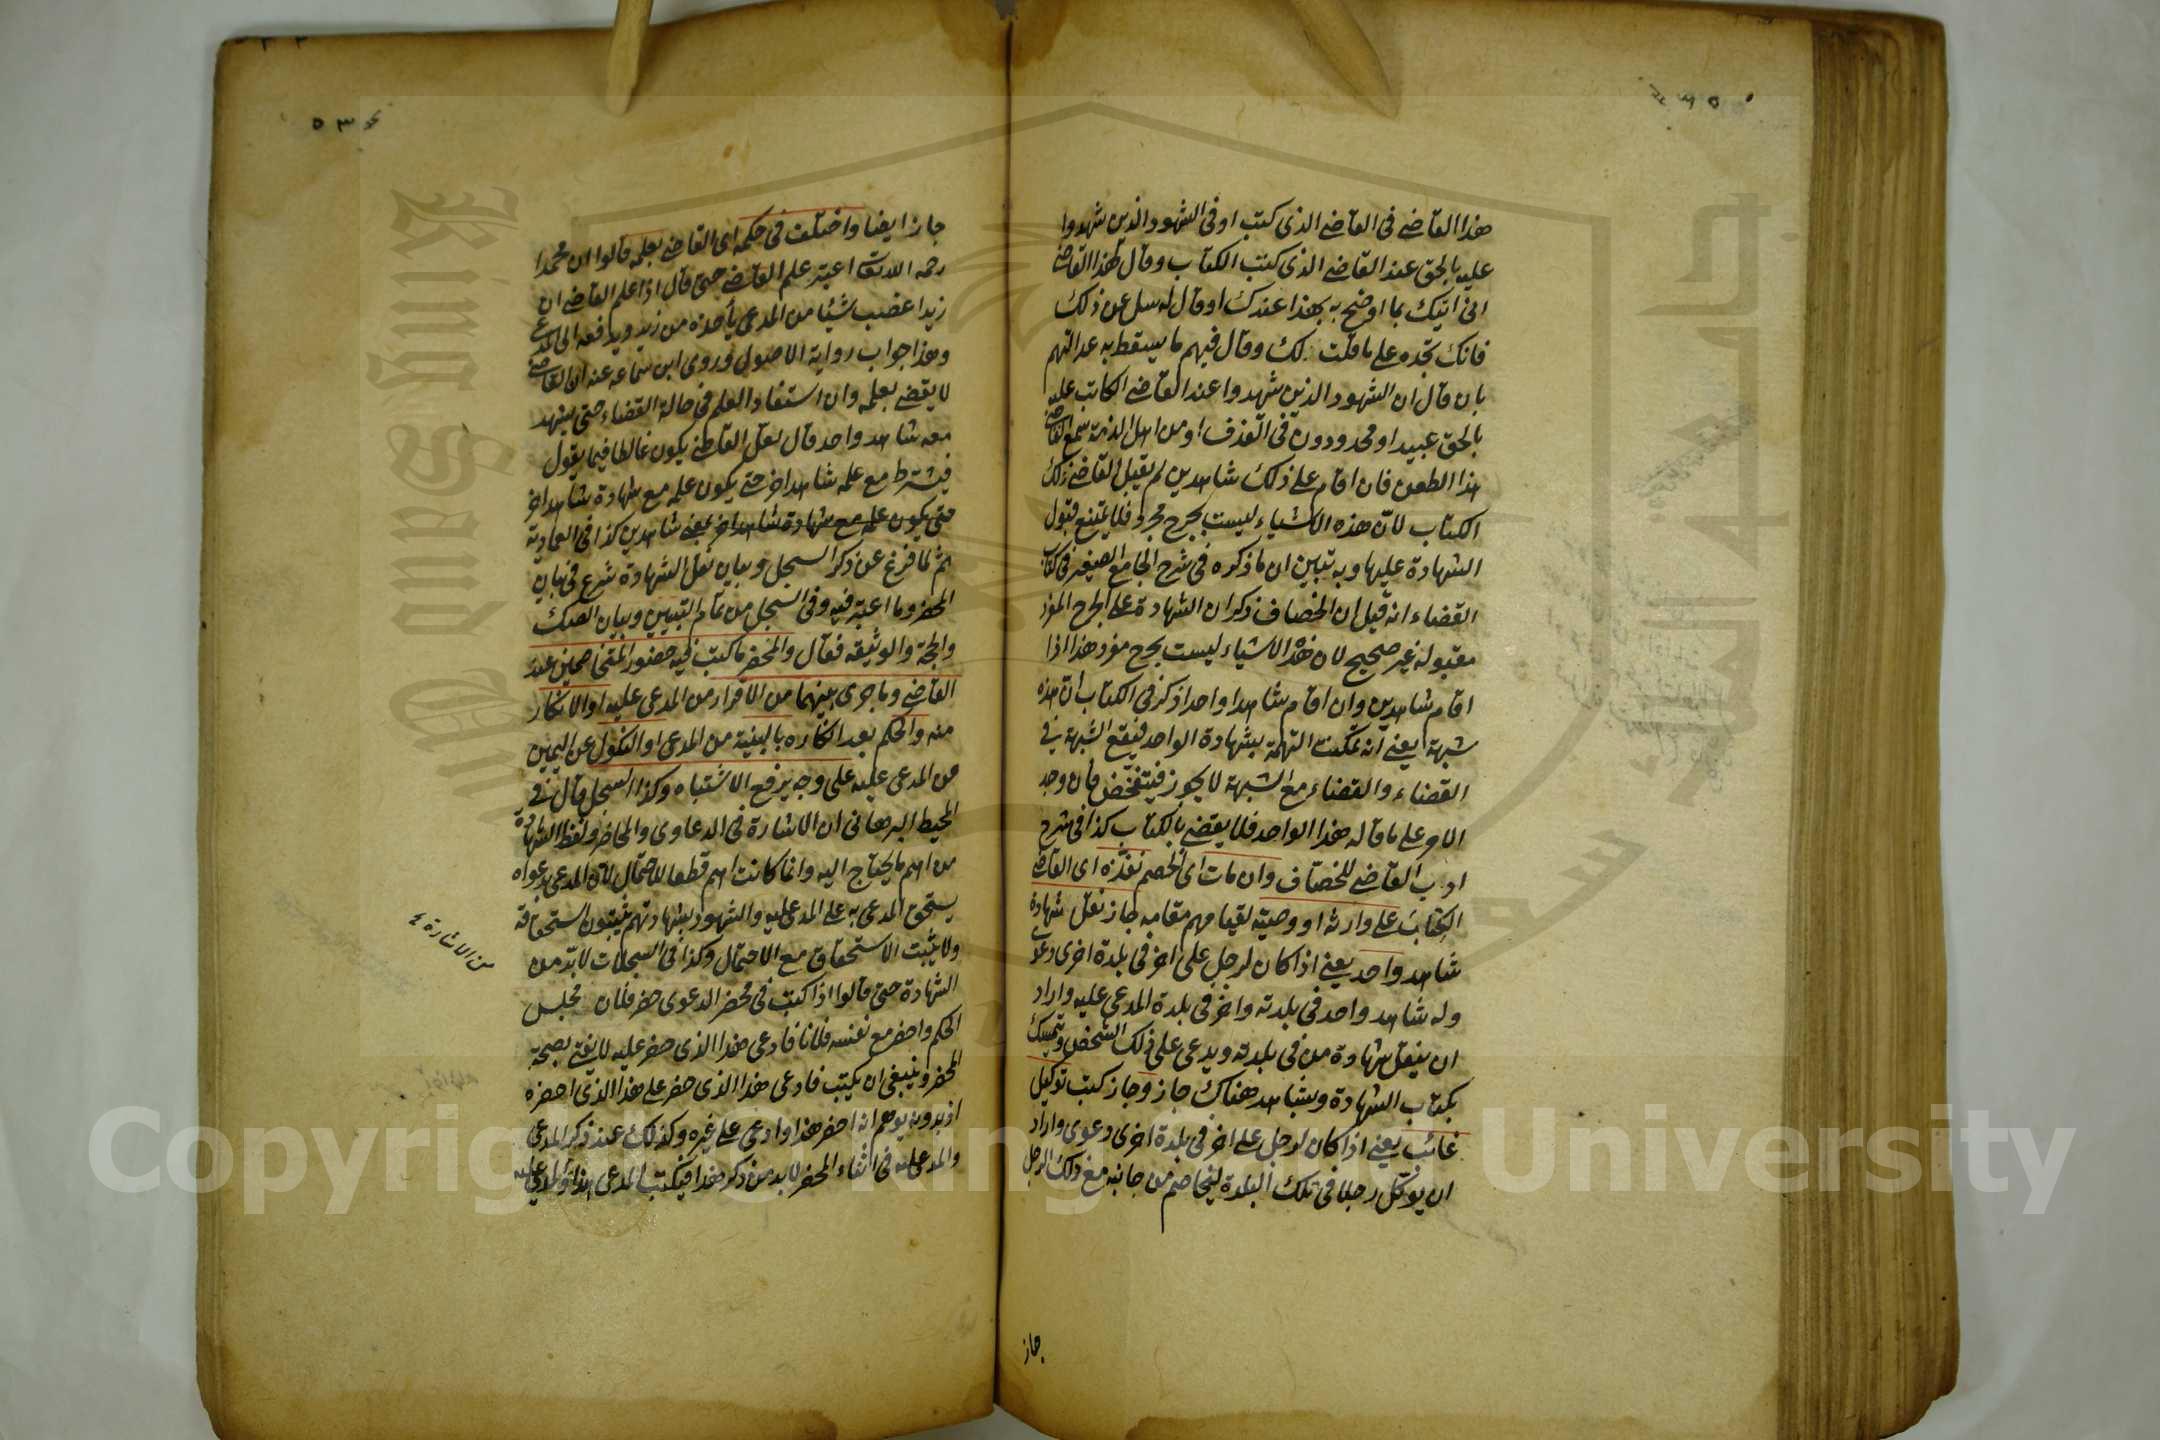 هذا القاضى فى القاضى الذى كتب او فى الشهود الذين شهدوا
عليه بالحق عند القاضى الذى كتب الكتاب وقال لهذا القاضى
انى اتيك بما اوضح به بهذا عندك او قال له سل عن ذلك
فانك تجده على ما قلت لك وقال فيهم ما يسقط به عدالتهم
بان قال ان الشهود الذين شهدوا عند القاضى الكاتب عليه
بالحق عبيد او محدودون فى القذف او من اهل الذمة سمع القاضى
هذا الطعن فان اقام على ذلك شاهدين لم يقبل القاضى ذلك
الكتاب لان هذه الاشياء ليست بجرح مجرد فلا يمتنع قبول
الشهادة عليها وبه تبين ان ما ذكره فى شرح الجامع الصغير فى كتاب
القضاء انه قيل ان الخصاف ذكر ان الشهادة على الجرح المفرد
مقبولة غير صحيح لان هذه الاشياء ليست بجرح مفرد هذا اذا
اقام شاهدين وان اقام شاهدا واحدا ذكر فى الكتاب ان هذه
شبهة يعنى انه تمكنت التهمة بشهادة الواحد فيقع الشبهة فى
القضاء والقضاء مع الشبهة لا يجوز فيتفحص فان وجد
الامر على ما قاله هذا الواحد فلا يقضى بالكتاب كذا فى شرح
ادب القاضى للخصاف وان مات اى الخصم نفذه اى القاضى
الكتاب على وارثه او وصيته لقيامهم مقامه جاز نقل شهادة
شاهد واحد يعنى اذا كان لرجل على اخر فى بلدة اخرى دعوى
وله شاهد واحد فى بلدته واخر فى بلدة المدعى عليه واراد
ان ينقل شهادة من فى بلدته ويدعى على ذلك الشخص ويتمسك
بكتاب الشهادة وبشاهد هناك جاز وجاز كتب توكيل
غائب يعنى اذا كان لرجل على اخر فى بلدة اخرى دعوى واراد
ان يوكل رجلا فى تلك البلدة ليخاصم من جانبه مع ذلك الرجل
جاز
٥٣٤
جاز ايضا واختلف فى حكمه اى القاضى بعلمه قالوا ان محمدا
رحمه الله تعالى اعتبر علم القاضى حتى قال اذا علم القاضى ان
زيدا غصب شيئا من المدعى يأخذه من زيد ويدفعه الى المدعى
وهذا جواب رواية الاصول وروى ابن سماعه عنه ان القاضى
لا يقضى بعلمه وان استفاد العلم فى حالة القضاء حتى يشهد
معه شاهد واحد قال لعل القاضى يكون غالطا فيما يقول
فيشترط مع علمه شاهد اخر حتى يكون علمه مع شهادة شاهد اخر
حتى يكون علمه مع شهادة شاهد اخر بمعنى شاهدين كذا فى العمادية
ثم لما فرغ عن ذكر السجل وبيان نقل الشهادة شرع فى بيان
المحضر وما اعتبر فيه وفى السجل من تمام التبيين وبيان الصك
والحجة والوثيقه فقال والمحضر ما كتب فيه حضور المتخاصمين عند
القاضى وما جرى بينهما من الاقرار من المدعى عليه او الانكار
منه والحكم بعد انكاره بالبينة من المدعى او النكول عن اليمين
من المدعى عليه على وجه يرفع الاشتباه وكذا السجل قال فى
المحيط البرهانى ان الاشارة فى الدعاوى والمحاضر ولفظ الشهادة
من اهم ما يحتاج اليه وانما كانت اهم قطعا للاحتمال لان المدعى بدعواه
يستحق المدعى به على المدعى عليه والشهود بشهادتهم يثبتون استحقاقه
ولا يثبت الاستحقاق مع الاحتمال وكذا فى السجلات لابد من
من الاشارة ٤
الشهادة حتى قالوا اذا كتب فى محضر الدعوى حضر فلان مجلس
الحكم واحضر مع نفسه فلانا فادعى هذا الذى حضر عليه لا يفتى بصحة
المحضر وينبغى ان يكتب فادعى هذا الذى حضر على هذا الذى احضره
اذ بدونه يوهم انه احضر هذا وادعى على غيره وكذلك عند ذكر المدعى
والمدعى عليه فى اثناء المحضر لابد من ذكر هذا فيكتب المدعى هذا والمدعى عليه
Copyright © King Saud University